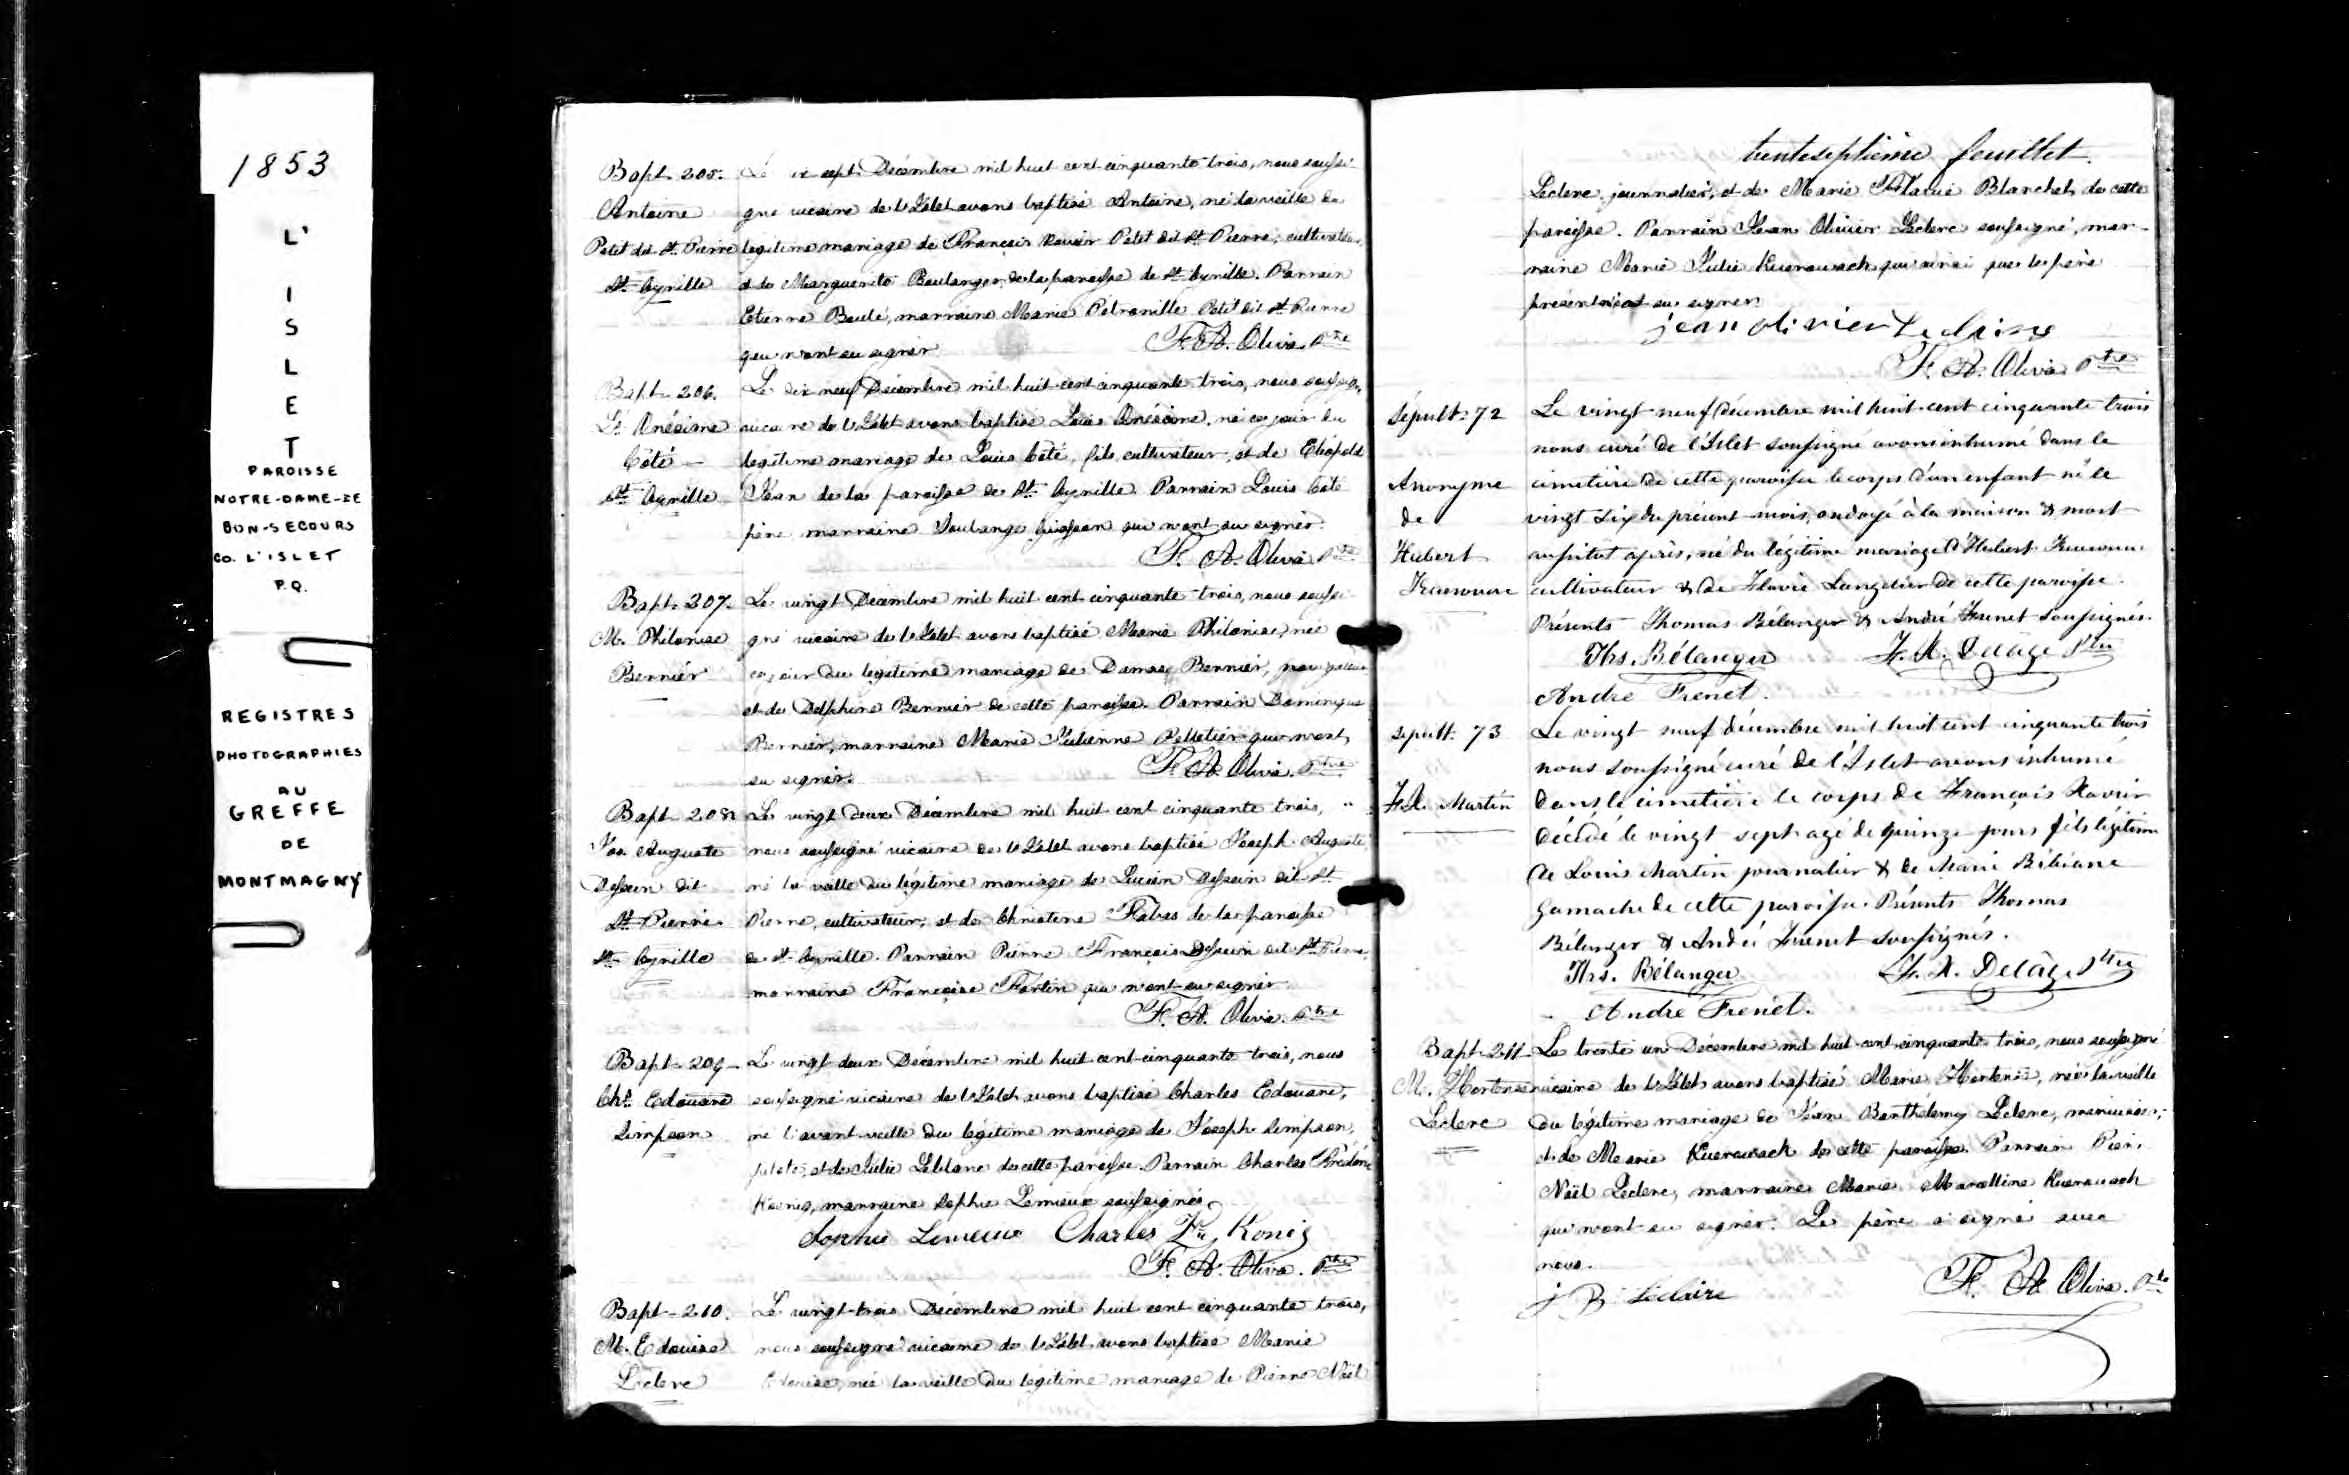 1853
L'
I
S
L
E
T
PAROISSE
NOTRE-DAME-DE
BON-SECOURS
CO. L'ISLET
P.Q.
REGISTRES
PHOTOGRAPHIES
AU
GREFFE
DE
MONTMAGNY
Bapt. 205.
Antoine
Petit dit St. Pierre
St. Cyrille
sept Décembre mil huit cent cinquante trois, nous soussi-
gné vicaire de l'Islet avons baptisé Antoine, né la veille du
légitime mariage de François Xavier Petit dit St. Pierre, cultivateur,
et de Marguerite Boulanger, de la paroisse de St. Cyrille. Parrain
Etienne Boulé, marraine Marie Petronille Petit dit St. Pierre
qui n'ont su signer
F. A. Oliva Ptre
Bapt. 206.
Ls. Onésime
Côté
St. Cyrille
Le dix neuf Décembre mil huit cent cinquante trois, nous soussigné
vicaire de l'Islet avons baptisé Louis Onésime, né ce jour du
légitime mariage de Louis Côté, fils, cultivateur, et de
Jean de la paroisse de St. Cyrille. Parrain Louis Côté
père marraine Soulange qui n'ont su signer.
F. A. Oliva Ptre
Bapt. 207.
M. Philonise
Bernier
Le vingt Décembre mil huit cent cinquante trois, nous soussi-
gné vicaire de l'Islet avons baptisé Marie Philonise, née
ce jour du légitime mariage de Damase Bernier, navigateur
et de Delphine Bernier de cette paroisse. Parrain Dominique
Bernier, marraine Marie Julienne Pelletier qui n'ont
su signer.
F. A. Oliva Ptre
Bapt. 208.
Jos. Auguste
Dessein dit
St. Pierre
St. Cyrille
Le vingt deux Décembre mil huit cent cinquante trois,
nous soussigné vicaire de l'Islet avons baptisé Joseph Auguste
né la veille du légitime mariage de Lucien Dessein dit St.
Pierre, cultivateur, et de Christine de la paroisse
de St. Cyrille. Parrain Pierre François Dessein dit St. Pierre,
marraine Françoise Fortin qui n'ont su signer
F. A. Oliva. Ptre
Bapt. 209
Chs. Edouard
Simpson
Le vingt deux Décembre mil huit cent cinquante trois, nous
soussigné vicaire de l'Islet avons baptisé Charles Edouard,
né l'avant-veille du légitime mariage de Joseph Simpson,
pilote, et de Julie Leblanc de cette paroisse. Parrain Charles Frédéric
Koenig, marraine Sophie Lemieux soussignés
Sophie Lemieux Charles Fr. Konig
F. A. Oliva. Ptre
Bapt. 210.
M. Edouise
Leclerc
Le vingt-trois Décembre mil huit cent cinquante trois,
nous soussigné vicaire de l'Islet avons baptisé Marie
Edouise, née la veille du légitime mariage de Pierre Noël
trente septième feuillet.
Leclerc, journalier, et de Marie Blanchet, de cette
paroisse. Parrain Jean Olivier Leclerc soussigné, mar-
raine Marie Julie Kuerouack qui ainsi que le père
présent n'ont su signer.
jean olivier
F. A. Oliva Ptre
Sépult. 72
Anonyme
de
Hubert
Le vingt-neuf décembre mil huit-cent cinquante trois
nous curé de l'Islet soussigné avons inhumé dans le
cimetière de cette paroisse le corps d'un enfant né le
vingt six du présent mois, ondoyé à la maison & mort
aussitot après, né du légitime mariage d'Hubert
cultivateur & de Flavie Langelier de cette paroisse.
Présents Thomas Bélanger & André Frenet soussignés.
Ths. Bélanger F. X. Delâge Ptre
André Frenet.
sépult. 73
F.X. Martin
Le vingt neuf décembre mil huit cent cinquante trois
nous soussigné curé de l'Islet avons inhumé
dans le cimetière le corps de François Xavier
décédé le vingt sept agé de quinze jours fils légitime
de Louis Martin journalier & de Marie Bibiane
Gamache de cette paroisse. Présents Thomas
Bélanger & André Frenet soussignés.
Ths. Bélanger F. X. Delâge Ptre
André Frenet.
Bapt. 211
M. Hortense
Leclerc
Le trente un Décembre mil huit cent cinquante trois, nous soussigné
vicaire de l'Islet avons baptisé Marie Hortense, née la veille
du légitime mariage de Jean Barthélemy Leclerc, menuisier,
et de Marie Kuerouack de cette paroisse. Parrain Pierre
Noël Leclerc, marraine Marie Marcelline Kuerouack
qui n'ont su signer. Le père a signé avec
nous.
J B Leclaire
F. A. Oliva. Ptre